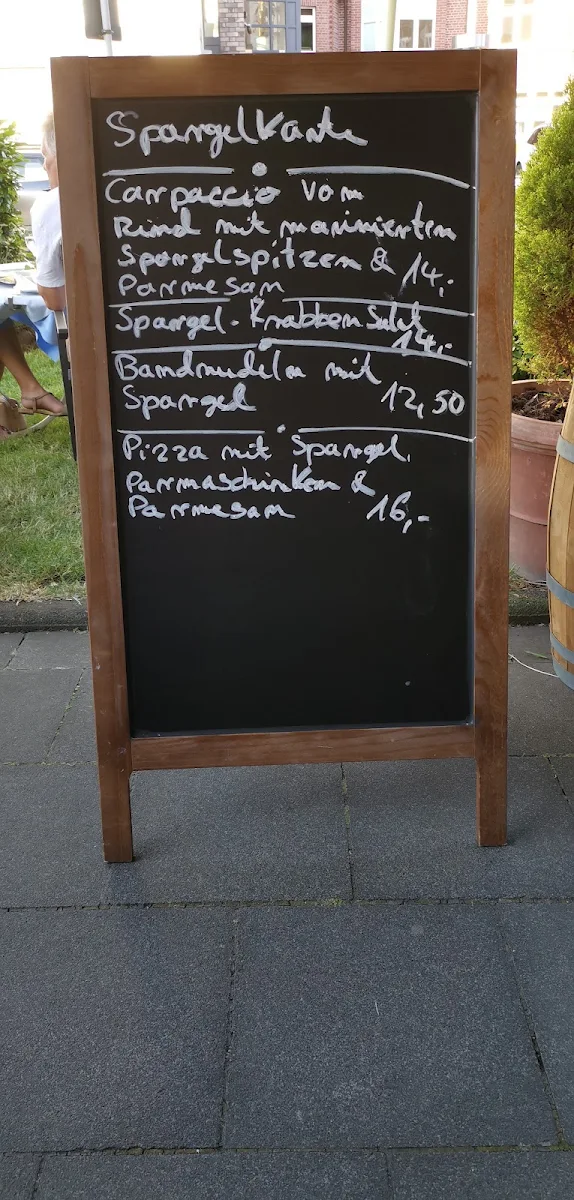 Spargelkarte
Carpaccio vom
Rind mit mariniertem
Spargelspitzen & 14,-
Parmesam
Spargel-Krabben Salat
14,-
Bandnudeln mit
Spargel 12,50
Pizza mit Spargel,
Parmaschinken &
Parmesan 16,-